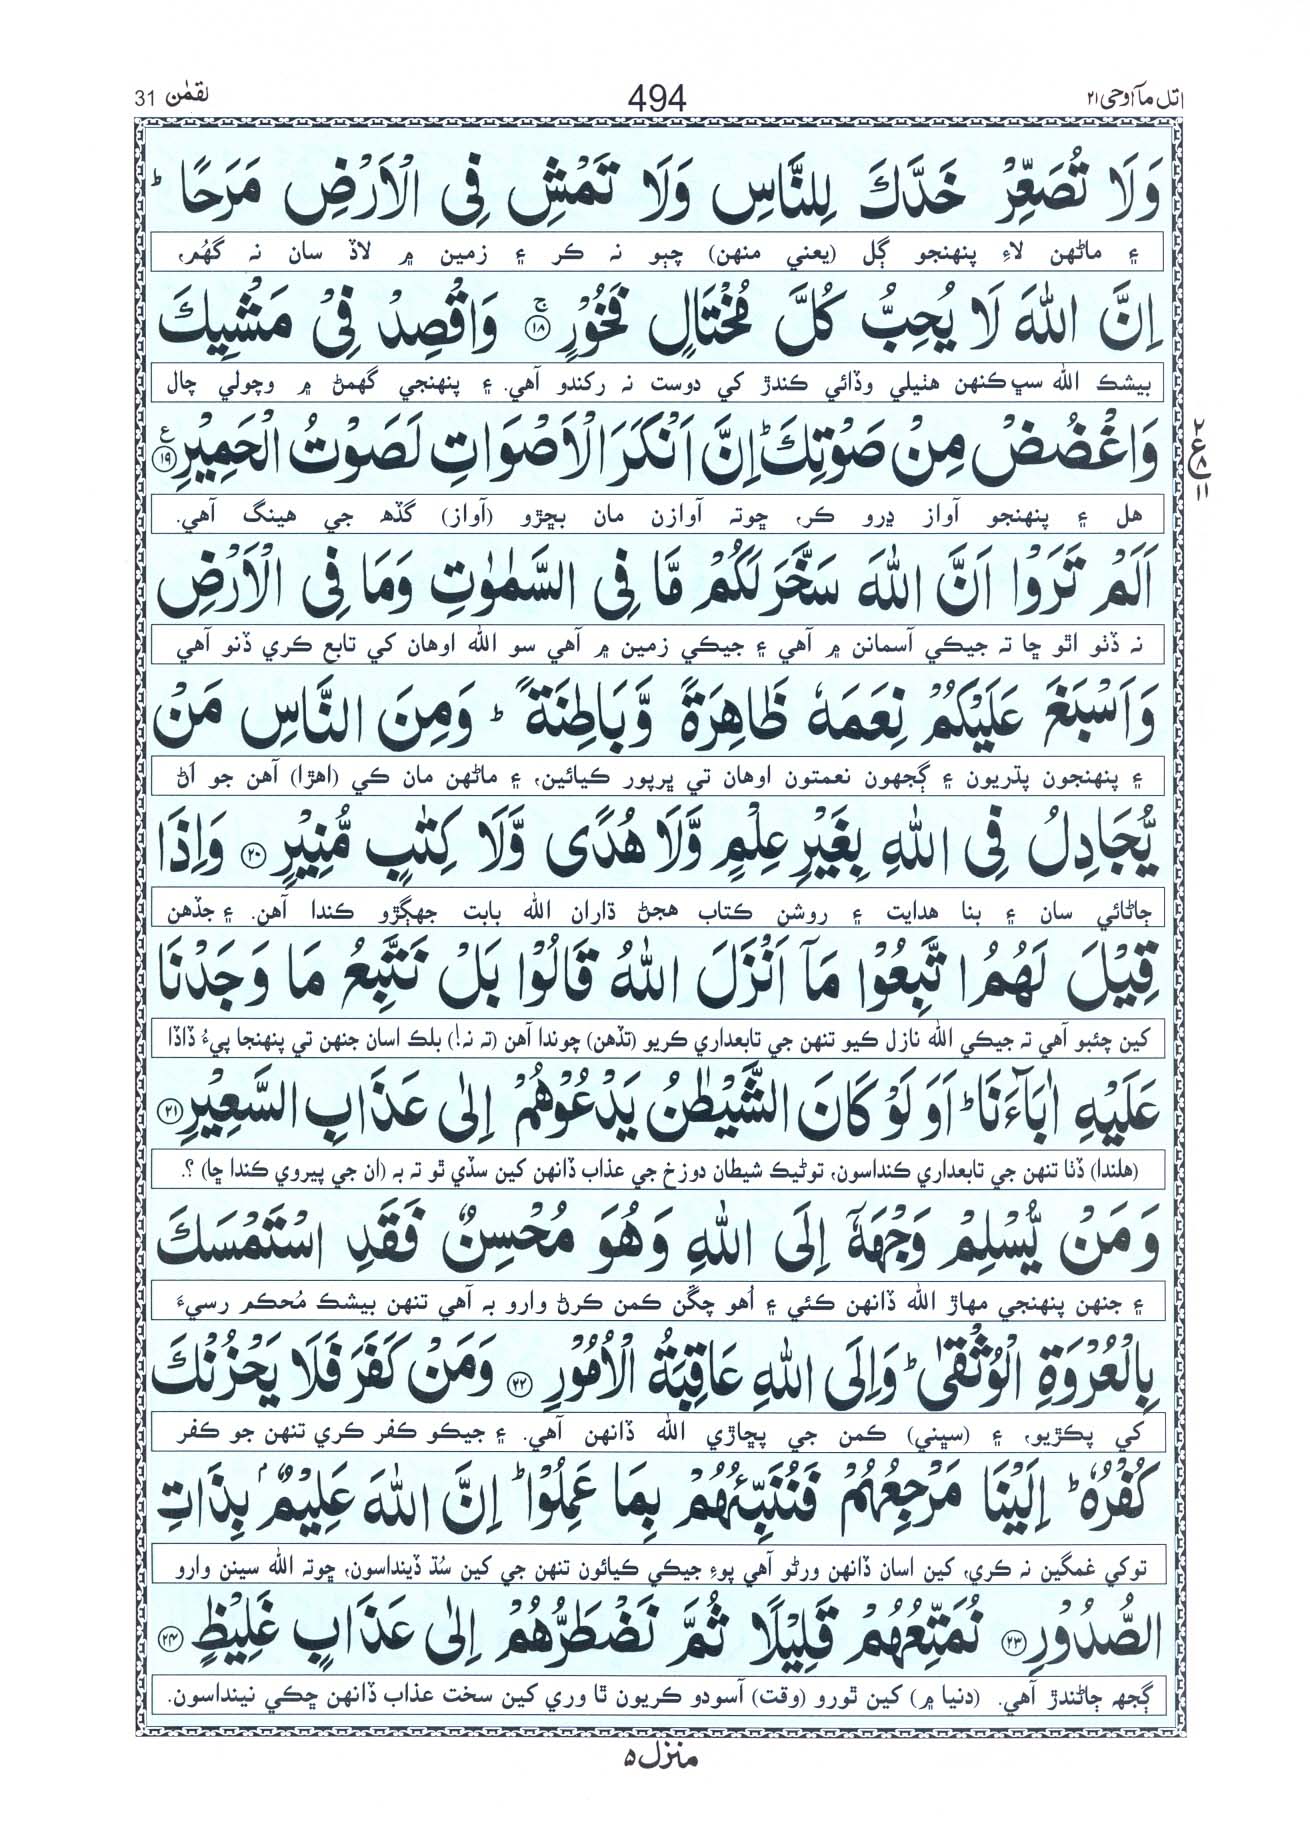 اتل مآ اوحی ۲۱ 494 لقمٰن 31
وَلَا تُصَعِّرْ خَدَّكَ لِلنَّاسِ وَلَا تَمْشِ فِی الْاَرْضِ مَرَحًا ؕ
۽ ماڻهن لاءِ پنهنجو ڳل (يعني منهن) چٻو نہ ڪر ۽ زمين ۾ لاڏ سان نہ گهُم،
اِنَّ اللّٰهَ لَا یُحِبُّ كُلَّ مُخْتَالٍ فَخُوْرٍ ۚ ﴿۱۸﴾ وَاقْصِدْ فِیْ مَشْیِكَ
بيشڪ الله سڀ ڪنهن هٺيلي وڏائي ڪندڙ کي دوست نہ رکندو آهي. ۽ پنهنجي گهمڻ ۾ وچولي چال
وَاغْضُضْ مِنْ صَوْتِكَ ؕ اِنَّ اَنْكَرَ الْاَصْوَاتِ لَصَوْتُ الْحَمِیْرِ ﴿۱۹﴾ ع
۲ ع ۸ ۱۱
هل ۽ پنهنجو آواز ڍرو ڪر، ڇوتہ آوازن مان بڇڙو (آواز) گڏهه جي هينگ آهي.
اَلَمْ تَرَوْا اَنَّ اللّٰهَ سَخَّرَ لَكُمْ مَّا فِی السَّمٰوٰتِ وَمَا فِی الْاَرْضِ
نہ ڏٺو اٿو ڇا تہ جيڪي آسمانن ۾ آهي ۽ جيڪي زمين ۾ آهي سو الله اوهان کي تابع ڪري ڏنو آهي
وَاَسْبَغَ عَلَیْكُمْ نِعَمَهٗ ظَاهِرَةً وَّبَاطِنَةً ؕ وَمِنَ النَّاسِ مَنْ
۽ پنهنجون پڌريون ۽ ڳجهون نعمتون اوهان تي ڀرپور ڪيائين، ۽ ماڻهن مان ڪي (اهڙا) آهن جو اڻ
یُّجَادِلُ فِی اللّٰهِ بِغَیْرِ عِلْمٍ وَّلَا هُدًی وَّلَا كِتٰبٍ مُّنِیْرٍ ﴿۲۰﴾ وَاِذَا
ڄاڻائي سان ۽ بنا هدايت ۽ روشن ڪتاب هجڻ ڌاران الله بابت جهڳڙو ڪندا آهن. ۽ جڏهن
قِیْلَ لَهُمُ اتَّبِعُوْا مَاۤ اَنْزَلَ اللّٰهُ قَالُوْا بَلْ نَتَّبِعُ مَا وَجَدْنَا
کين چئبو آهي تہ جيڪي الله نازل ڪيو تنهن جي تابعداري ڪريو (تڏهن) چوندا آهن (تہ نہ!) بلڪ اسان جنهن تي پنهنجا پيءُ ڏاڏا
عَلَیْهِ اٰبَآءَنَا ؕ اَوَلَوْ كَانَ الشَّیْطٰنُ یَدْعُوْهُمْ اِلٰی عَذَابِ السَّعِیْرِ ﴿۲۱﴾
(هلندا) ڏٺا تنهن جي تابعداري ڪنداسون، توڻيڪ شيطان دوزخ جي عذاب ڏانهن کين سڏي ٿو تہ بہ (ان جي پيروي ڪندا ڇا) ؟.
وَمَنْ یُّسْلِمْ وَجْهَهٗۤ اِلَی اللّٰهِ وَهُوَ مُحْسِنٌ فَقَدِ اسْتَمْسَكَ
۽ جنهن پنهنجي مهاڙ الله ڏانهن ڪئي ۽ اُهو چڱن ڪمن ڪرڻ وارو بہ آهي تنهن بيشڪ مُحڪم رسيءَ
بِالْعُرْوَةِ الْوُثْقٰی ؕ وَاِلَی اللّٰهِ عَاقِبَةُ الْاُمُوْرِ ﴿۲۲﴾ وَمَنْ كَفَرَ فَلَا یَحْزُنْكَ
کي پڪڙيو، ۽ (سڀني) ڪمن جي پڇاڙي الله ڏانهن آهي. ۽ جيڪو ڪفر ڪري تنهن جو ڪفر
كُفْرُهٗ ؕ اِلَیْنَا مَرْجِعُهُمْ فَنُنَبِّئُهُمْ بِمَا عَمِلُوْا ؕ اِنَّ اللّٰهَ عَلِیْمٌۢ بِذَاتِ
توکي غمگين نہ ڪري، کين اسان ڏانهن ورڻو آهي پوءِ جيڪي ڪيائون تنهن جي کين سُڌ ڏينداسون، ڇوتہ الله سينن وارو
الصُّدُوْرِ ﴿۲۳﴾ نُمَتِّعُهُمْ قَلِیْلًا ثُمَّ نَضْطَرُّهُمْ اِلٰی عَذَابٍ غَلِیْظٍ ﴿۲۴﴾
ڳجهه ڄاڻندڙ آهي. (دنيا ۾) کين ٿورو (وقت) آسودو ڪريون ٿا وري کين سخت عذاب ڏانهن ڇڪي نينداسون.
منزل ۵